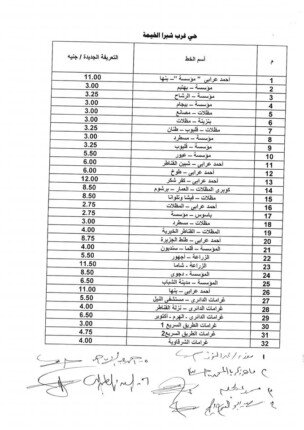 حي غرب شبرا الخيمة
م أسم الخط التعريفة الجديدة / جنيه
1 احمد عرابى " مؤسسة "– بنها 11.00
2 مؤسسة – بهتيم 3.00
3 مؤسسة – الرشاح 3.25
4 مؤسسة – بيجام 3.00
5 مظلات – مصانع 3.00
6 بنزينة – مظلات 3.00
7 مظلات – قليوب – طنان 3.25
8 مؤسسة – مسطرد 3.00
9 مؤسسة – قليوب 3.25
10 مؤسسة – عبور 5.50
11 احمد عرابى – شبين القناطر 6.00
12 احمد عرابى – طوخ 6.00
13 احمد عرابى – كفر شكر 12.00
14 كوبري المظلات – العمار – برشوم 8.50
15 مظلات – فيشا وبلتوانا 5.50
16 احمد عرابى – المظلات 2.75
17 باسوس – مؤسسة 2.75
18 مظلات – مسطرد 3.00
19 مظلات – القناطر الخيرية 4.00
20 احمد عرابى – طنط الجزيرة 8.75
21 مؤسسة – قلما – سنديون 4.00
22 الزراعة – اجهور 5.50
23 الزراعة – شاما 11.50
24 المؤسسة – دجوى 8.50
25 المؤسسة – مدينة الشباب 6.50
26 احمد عرابى – بنها 11.00
27 غرامات الدائري – مستشفى النيل 5.50
28 غرامات الدائري – نزلة القناطر 4.00
29 غرامات الدائري – الهرم – اكتوبر 6.50
30 غرامات الطريق السريع 1 3.00
31 غرامات الطريق السريع2 4.75
32 غرامات الشرقاوية 4.00